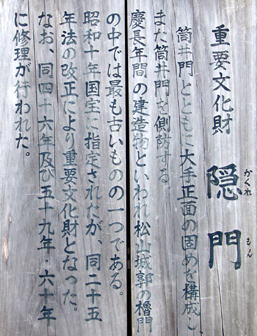 重要文化財
隠門
かくれ もん
筒井門とともに大手正面の固めを構成し
また筒井門を側防する。
慶長年間の建造物といわれ松山城郭の櫓門
の中では最も古いものの一つである。
昭和十年国宝に指定されたが、同二十五
年法の改正により重要文化財となった。
なお、同四十六年及び五十九年・六十年
に修理が行われた。